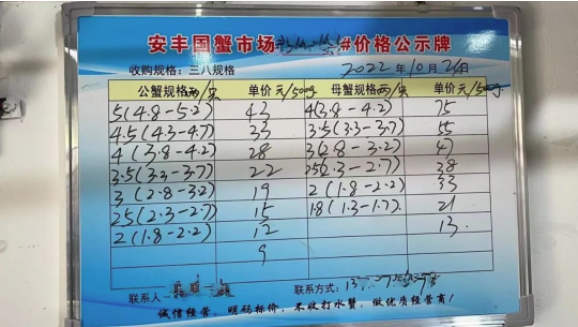 安丰国蟹市场 #价格公示牌
收购规格：三八规格 2022年10月26日
公蟹规格两/只 单价 元/500g 母蟹规格两/只 单价 元/500g
5(4.8-5.2) 43 4(3.8-4.2) 75
4.5(4.3-4.7) 33 3.5(3.3-3.7) 55
4(3.8-4.2) 28 3(2.8-3.2) 47
3.5(3.3-3.7) 22 25(2.3-2.7) 38
3(2.8-3.2) 19 2(1.8-2.2) 33
25(2.3-2.7) 15 1.8(1.3-1.7) 21
2(1.8-2.2) 12 13
9
联系人 联系方式：13
诚信经营、明码标价、不收打水蟹、做优质经营商！